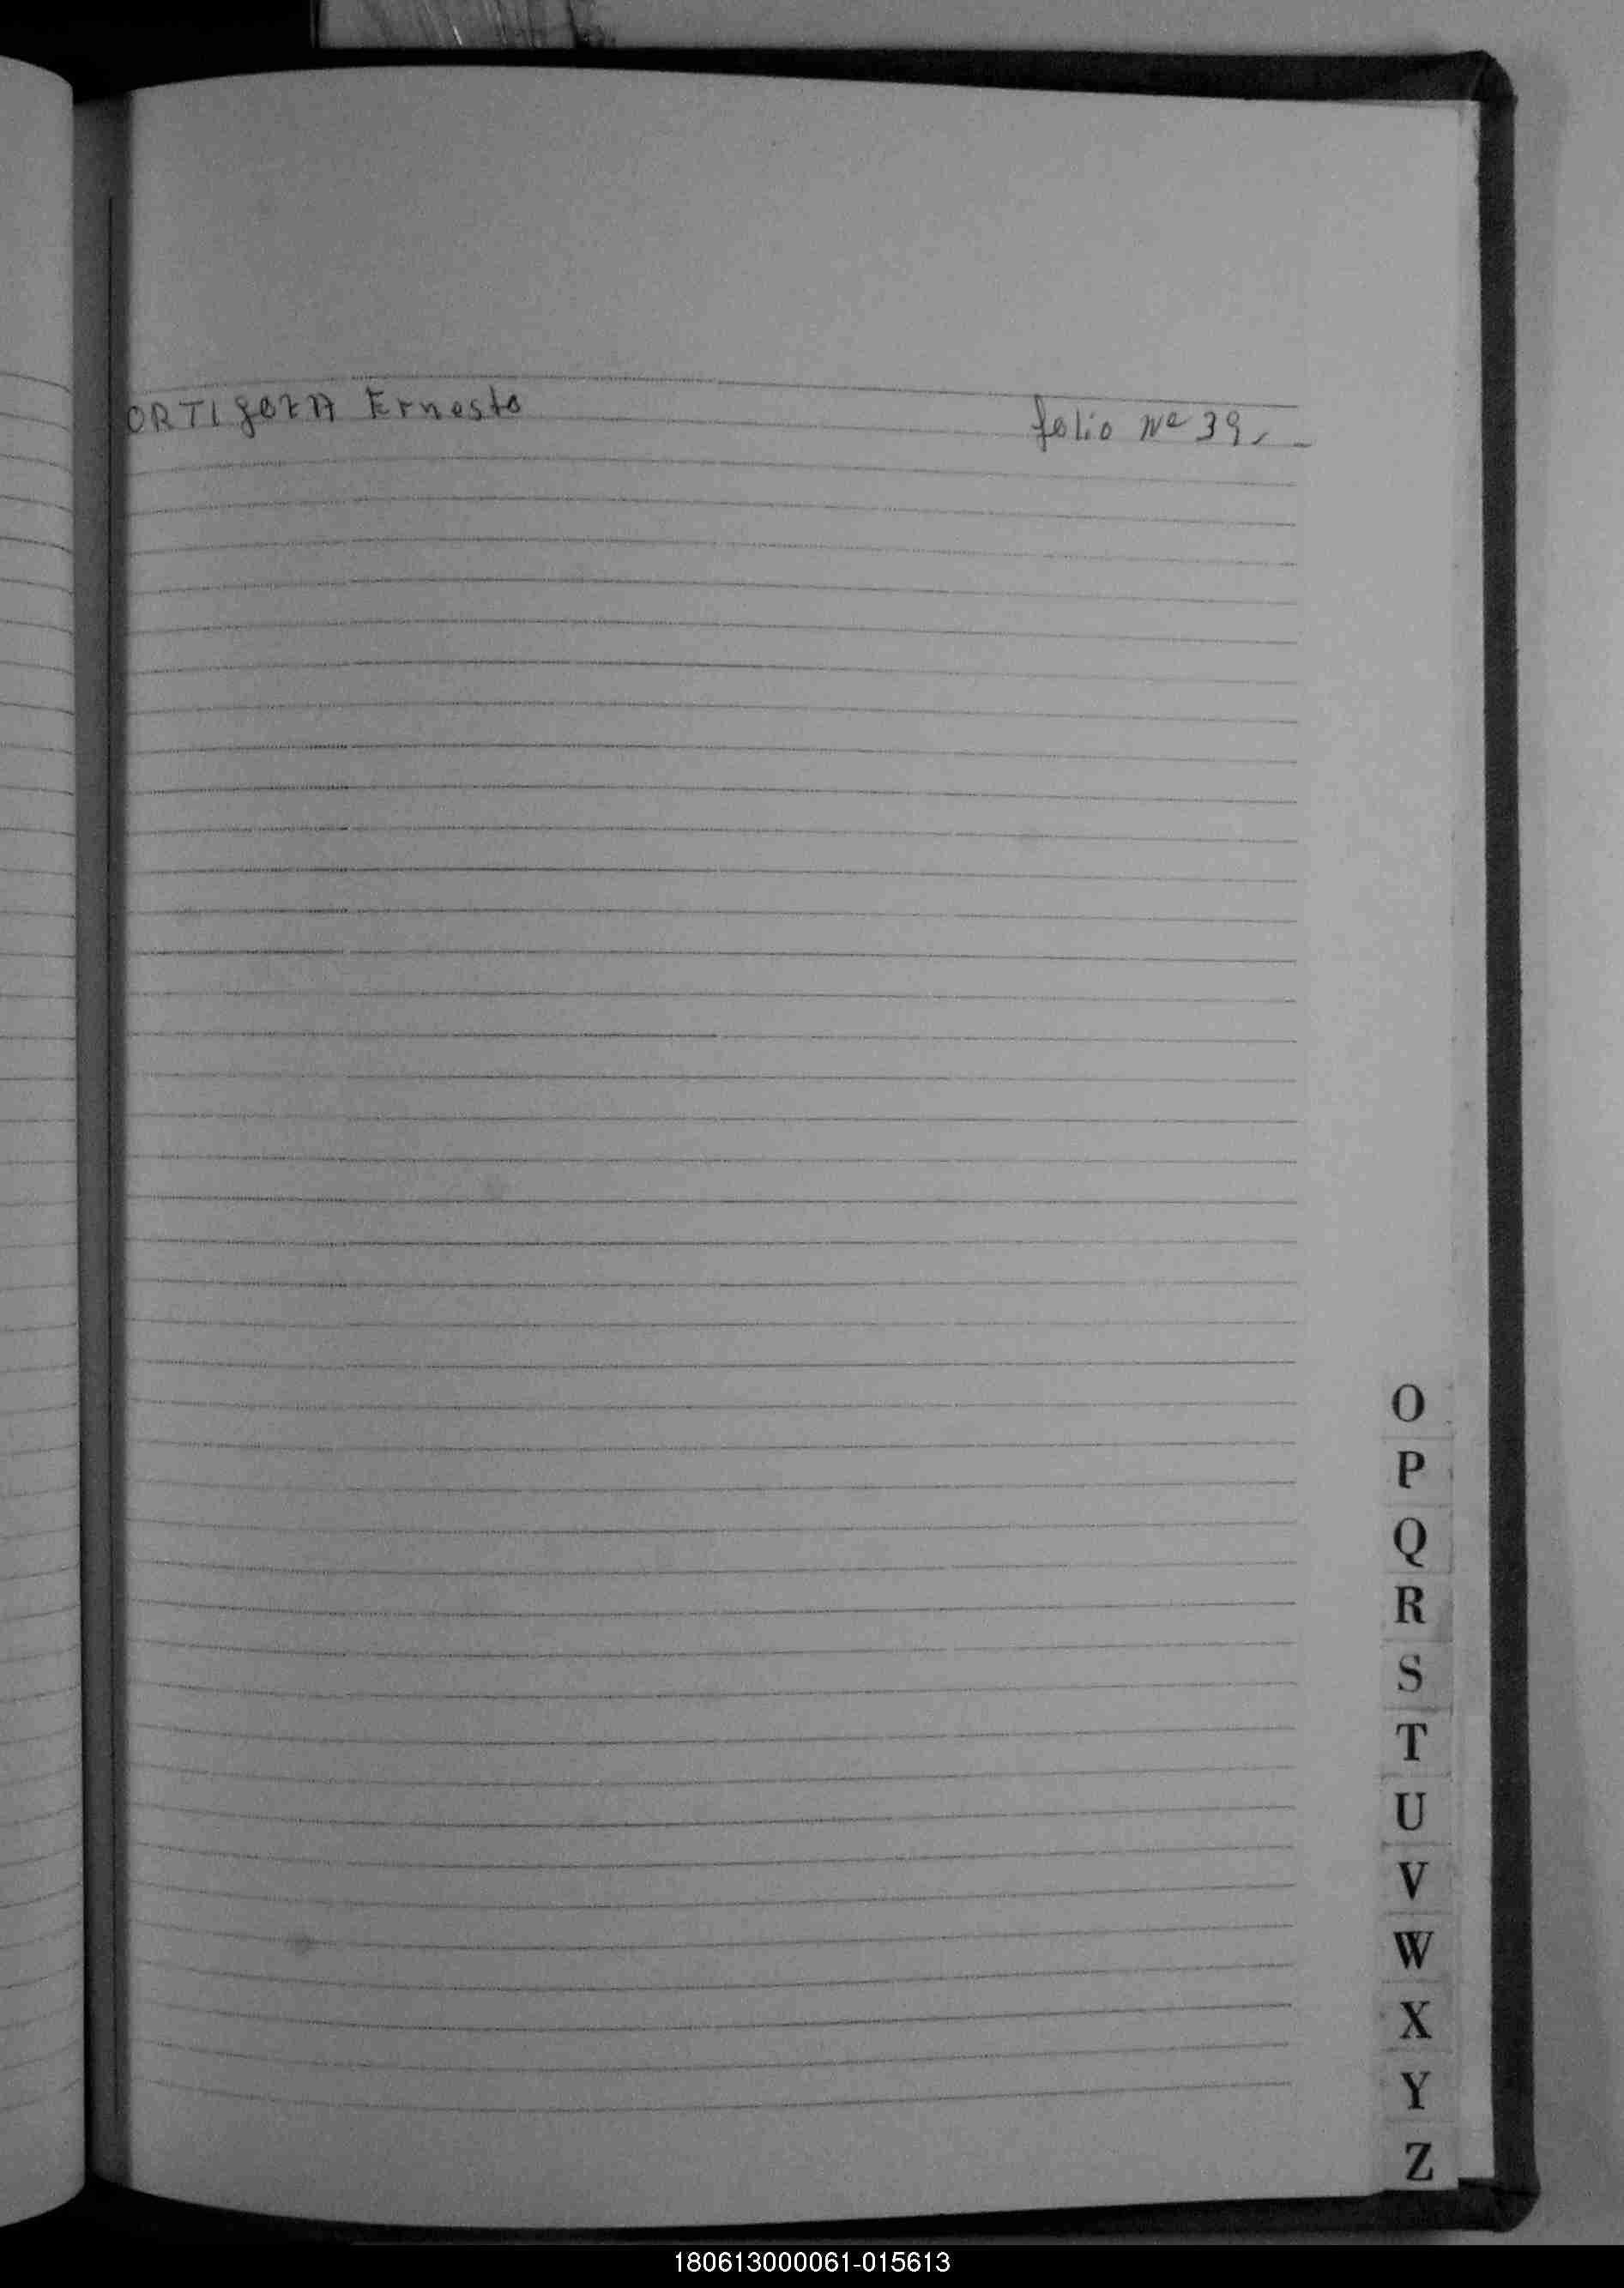 ORTIgOZA Ernesto folio Nº 39.-
O
P
Q
R
S
T
U
V
W
X
Y
Z
180613000061-015613